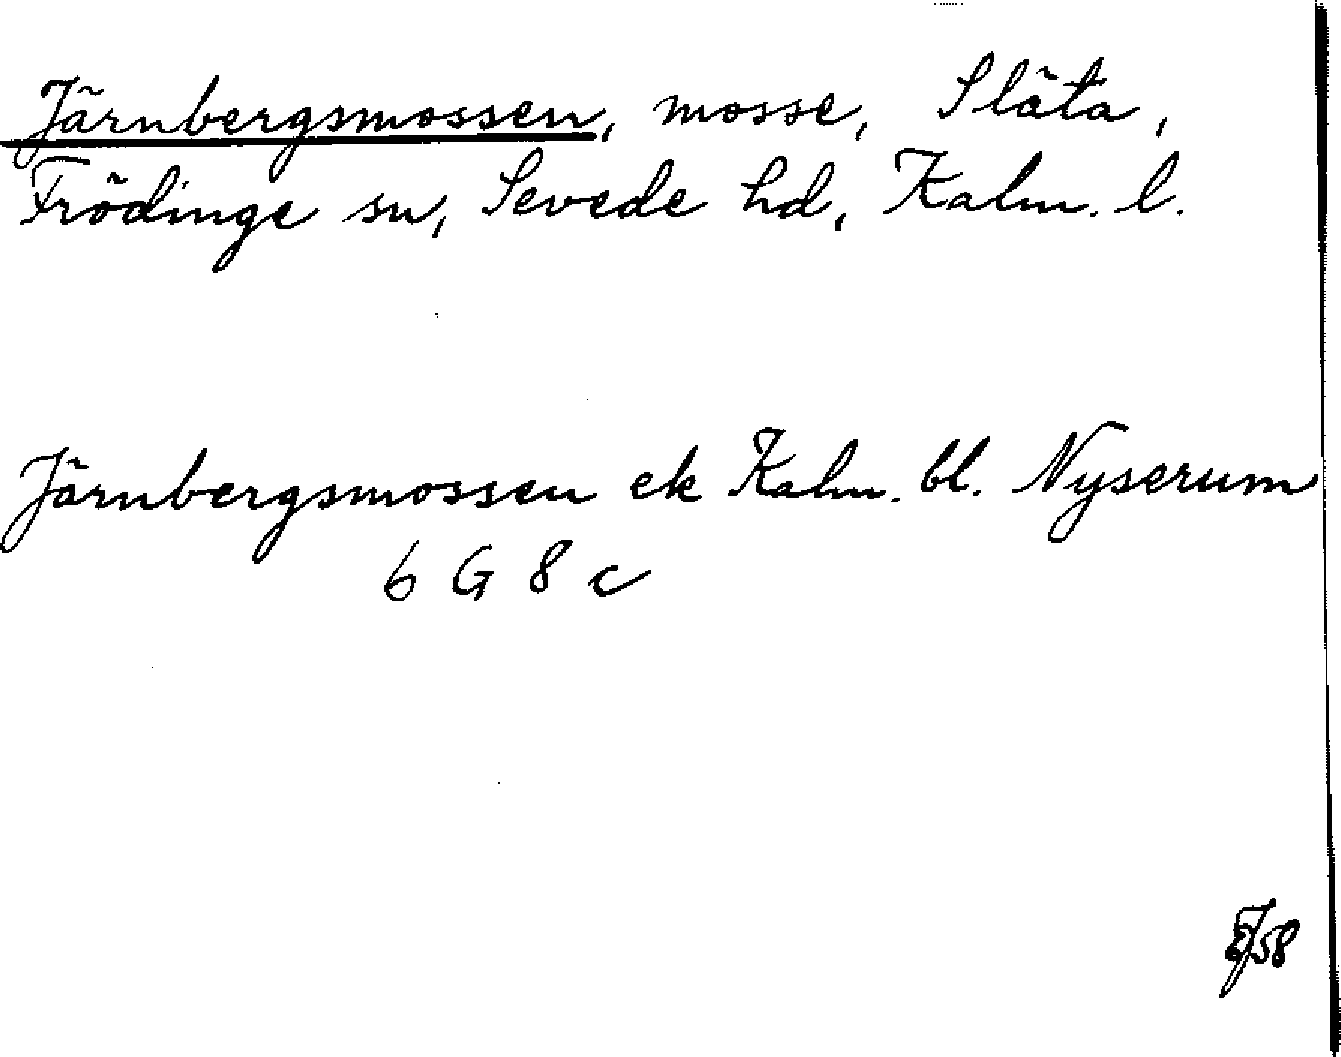 Järnbergsmossen, mosse, Släta,
Frödinge sn, Sevede hd, Kalm. l.
Järnbergsmossen ek Kalm. bl. Nyserum
6 G 8 c
58